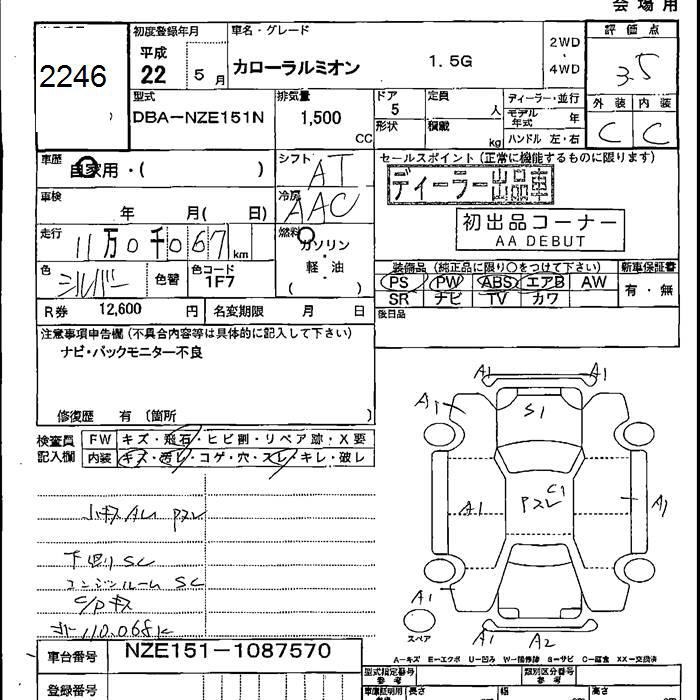 会場用
2246
初度登録年月
平成
22 5月
車名・グレード
カローラルミオン 1.5G
2WD
・
4WD
評価点
3.5
外装 内装
C C
型式
DBA-NZE151N
排気量
1,500 CC
ドア
5
定員 人
形状 積載 kg
ディーラー・並行
モデル年式 年
ハンドル 左・右
車歴 自家用・( )
シフト AT
車検 年 月( 日)
冷房 AAC
走行 11万0千067km
燃料 ガソリン
軽・油
( )
色 シルバー 色替 色コード
1F7
R券 12,600 円 名変期限 月 日
セールスポイント(正常に機能するものに限ります)
ディーラー出品車
初出品コーナー
AA DEBUT
装備品(純正品に限り○をつけて下さい) 新車保証書
PS PW ABS エアB AW 有・無
SR ナビ TV カワ
後日品
注意事項申告欄(不具合内容等は具体的に記入して下さい)
ナビ・バックモニター不良
修復歴 有〔箇所 〕
検査員 FW キズ・飛石・ヒビ割・リペア跡・X要
記入欄 内装 キズ・汚レ・コゲ・穴・スレ・キレ・破レ
小キズ AL PZL
下回り SC
エンジンルーム SC
C/P キズ
110.068k
A1 A1
A1
S1
C1
A1 PZL A1
A1
スペア
A1 A2
A-キズ E-エクボ U-凹み W-補修跡 S-サビ C-腐食 XX-交換済
車台番号 NZE151-1087570
登録番号
型式指定番号 類別区分番号
参考 参考
車庫証明用 長さ 幅 高さ